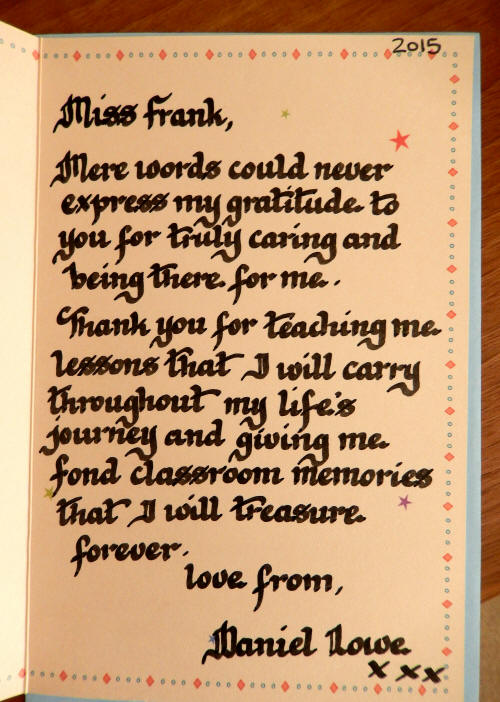 2015
Miss Frank,
Mere words could never
express my gratitude to
you for truly caring and
being there for me.
Thank you for teaching me
lessons that I will carry
throughout my life's
journey and giving me
fond classroom memories
that I will treasure
forever.
love from,
Daniel Lowe
x x x